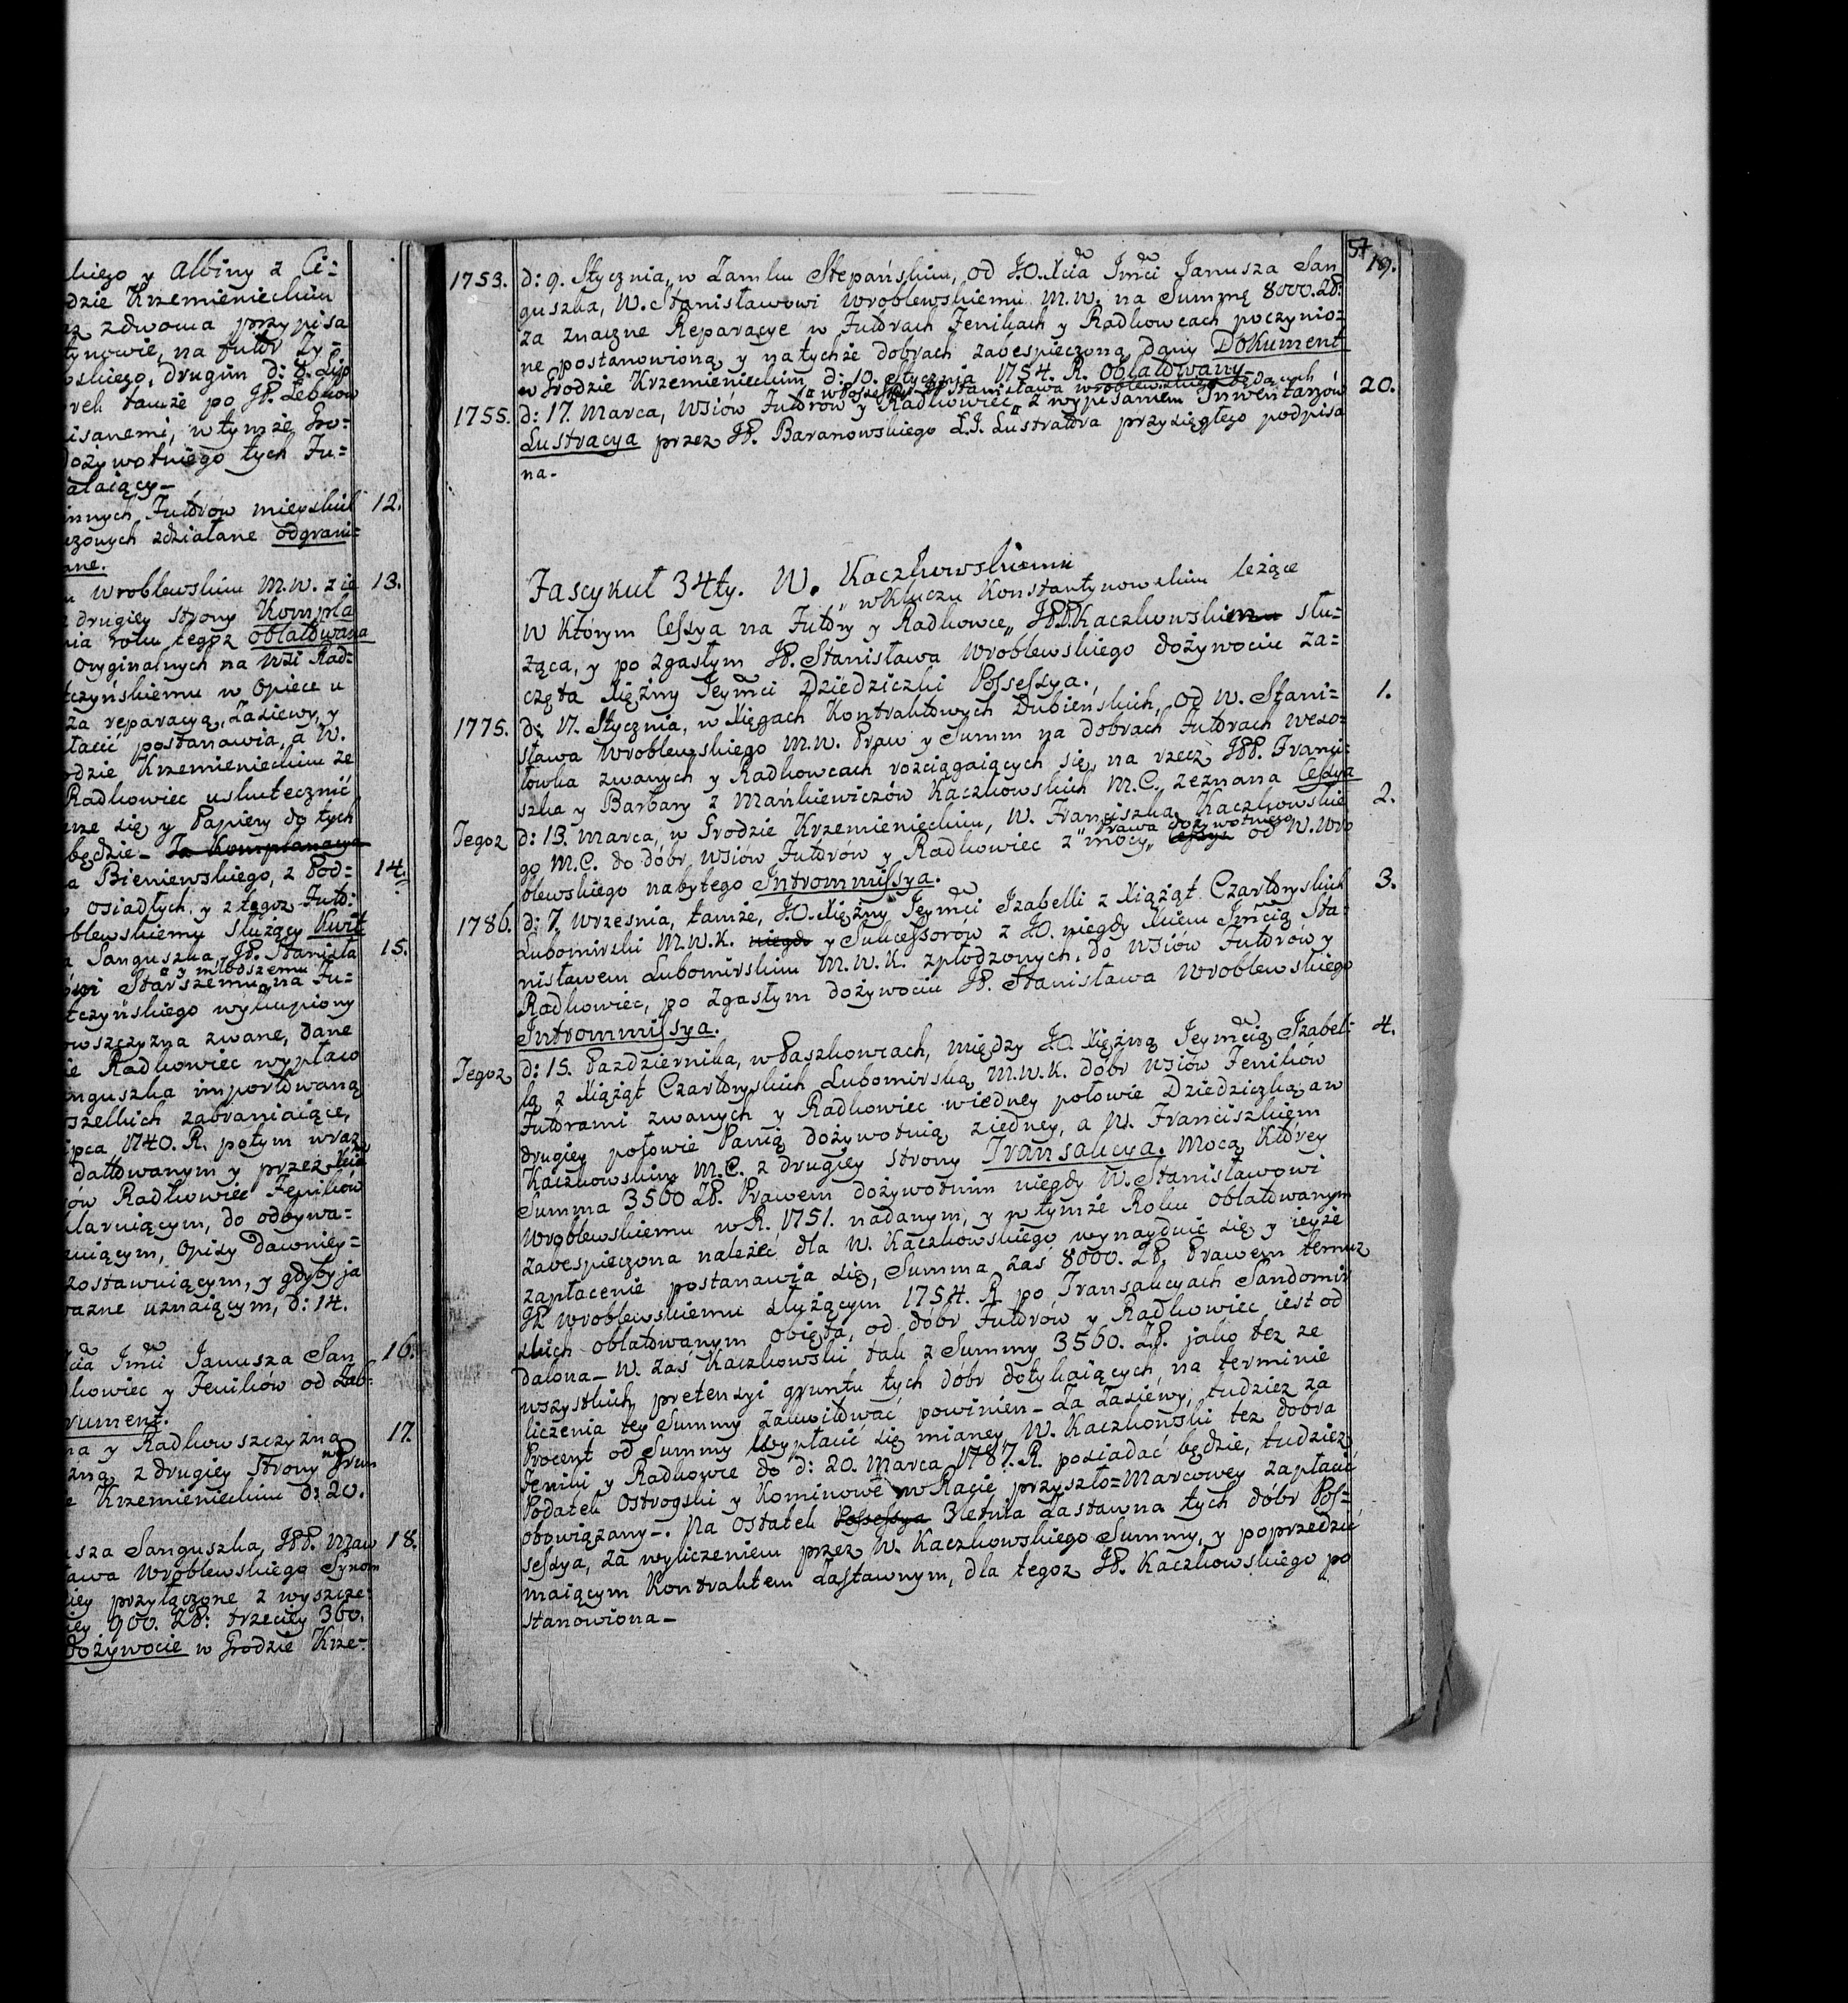 lskiego y Albiny z Ci=
dzie Krzemienieckim
az zdwoma przypisa
tynowie, na futór Ży=
wskiego, drugim d: 8. Lip
rek tamże po JP. Zebrow
isanemi, w tymże Gro=
dożywotniego tych Fu=
ałaiący_
innych Futorów mieyskich 12.
czonych zdziałane odgrani=
ane.
u Wroblewskim M.W. z ie 13.
z drugiey strony Kompla
nia roku tegoż oblatowana
Oryginalnych na Wsi Rad=
tczyńskiemu w Opiece u
za reparacyą, Zasiewy, y
łacić postanawia, a W.
odzie Krzemienieckim ze
Radkowiec uskutecznić
rze się y Papiery do tych
będzie_ Ta Komplanacya
a Bieniewskiego, z Pod= 14.
osiadłych y z tegoż Futo:
oblewskiemu służący Kwit
a Sanguszka, JP. Stanisła 15.
y młodszemu
owi Starszemu na Fu=
tczyńskiego wykupiony
owszczyzna zwane, dane
ie Radkowiec wypłaco
nguszka importowaną
szelkich zabraniaiące,
ipca 1740. R. potym wraz
datowanym y przez Xcia
ów Radkowiec Fenikow
larniącym, do odbywa=
zniącym, Opisy dawniey=
zostawuiącym, y gdyby ja
ważne uznaiącym, d: 14.
Xcia Jmci Janusza San 16.
dkowiec y Fenikow od Zab=
rument.
na y Radkowszczyzna 17.
zną z drugiey strony na Grun
e Krzemienieckim d: 20.
usza Sanguszka, JPP. Maw 18.
ława Wroblewskiego Synom
iey przyłączone z wyszcze:
iey 900. Zł: trzeciey 360.
dożywocie w Grodzie Krze=
57
1753. d: 9. Stycznia, w Zamku Stepańskim, od J.O. Xcia Jmci Janusza San 19.
guszka, W. Stanisławowi Wroblewskiemu M.W. na Summę 8000. Zł:
za znaczne Reparacye w Futorach Fenikach y Radkowcach poczynio=
ne postanowioną y na tychże dobrach zabespieczoną dany Dokument
w Grodzie Krzemienieckim d: 10. Stycznia 1754. R. Oblatowany_
w Possessyi JP. Stanisława Wroblewskiego będących
1755. d: 17. Marca, Wsiów Futorów y Radkowiec„ z wypisaniem Jnwentarzów 20.
Lustracya przez JP. Baranowskiego L.J. Lustratora przysięgłego podpisa
na.
Fascykuł 34ty. W. Kaczkowskiemu
„ w Kluczu Konstantynowskim leżące
w którym Cessya na Futory y Radkowce„ JPP. Kaczkowskiemu słu=
żąca, y po zgasłym JP. Stanisława Wroblewskiego dożywociu za=
częta Xiężny Jeymci Dziedziczki Possessya.
1775. d: 17. Stycznia, w Xięgach Kontraktowych Dubieńskich, od W. Stani= 1.
sława Wroblewskiego M.W. Praw y Summ na dobrach Futorach Weso=
łówka zwanych y Radkowcach rozciągaiących się, na rzecz JPP. Franci=
szka y Barbary z Mańkiewiczów Kaczkowskich M.C. zeznana Cessya
Tegoż d: 13. Marca, w Grodzie Krzemienieckim, W. Franciszka Kaczkowskie 2.
Prawa dożywotniego
go M.C. do dóbr Wsiów Futorów y Radkowiec z mocy„ Cessyi od W. Wro
blewskiego nabytego Jntrommissya.
1786. d: 7. Wrzesnia, tamże, J.O. Xiężny Jeymci Jzabelli z Xiążąt Czartoryskich 3.
Lubomirski M.W.K. niegdy y Sukcessorów z J.O. niegdy Xciem Jmcią Sta=
nisławem Lubomirskim M.W.K. zpłodzonych, do Wsiów Futorów y
Radkowiec, po zgasłym dożywociu JP. Stanisława Wroblewskiego
Jntrommissya.
Tegoż d: 15. Pazdziernika, w Paszkowcach, między J.O. Xiężną Jeymcią Jzabel= 4.
lą z Xiążąt Czartoryskich Lubomirską M.W.K. dóbr Wsiów Feników
Futorami zwanych y Radkowiec w iedney połowie Dziedziczką a w
drugiey połowie Panią dożywotnią z iedney, a W. Franciszkiem
Kaczkowskim M.C. z drugiey strony Transakcya. Mocą którey
Summa 3560 Zł. Prawem dożywotnim niegdy W. Stanisławowi
Wroblewskiemu w R. 1751. nadanym, y w tymże Roku oblatowanym
zabespieczona należeć dla W. Kaczkowskiego wynayduie się y ieyże
zapłacenie postanawia się, Summa zaś 8000. Zł. Prawem temuż
JP. Wroblewskiemu służącym 1754. R. po Transakcyach Sandomir
skich oblatowanym obięta, od dóbr Futorów y Radkowiec iest od
dalona_ W. zaś Kaczkowski tak z Summy 3560. Zł. jako też ze
wszystkich pretensyi gruntu tych dóbr dotykaiących, na terminie
liczenia tey Summy zakwitować powinien_ Za Zasiewy, tudzież za
Procent od Summy wypłacić się mianey, W. Kaczkowski też dobra
Feniki y Radkowce do d: 20. Marca 1787. R. posiadać będzie, tudzież
Podatek Ostrogski y Kominowe w Racie przyszło=Marcowey zapłacić
obowiązany_. Na ostatek Possessya 3letnia Zastawna tych dóbr Pos=
sessya, za wyliczeniem przez W. Kaczkowskiego Summy, y poprzedzić
maiącym Kontraktem Zastawnym, dla tegoż JP. Kaczkowskiego po
stanowiona_